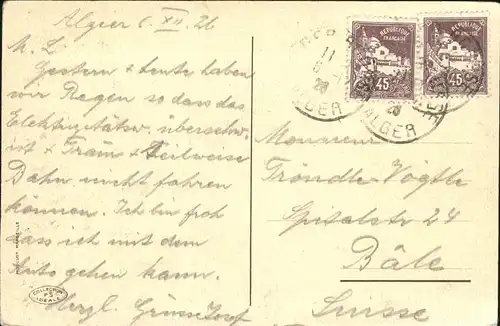 Alger 6. XII. 26
M. L
Gestern & heute haben
wir Regen so dass das
Elektrizitätsw. überschw.
ist & Tram & teilweise
Bahn nicht fahren
können. Ich bin froh
dass ich mit dem
Auto gehen kann.
Herzl. Grüsse
COLLECTION
P S
IDÉALE
REPUBLIQUE
FRANÇAISE
45
REPUBLIQUE
FRANÇAISE
45
ALGER
ALGER
Monsieur
Tröndle-Vögtle
Spitalstr 24
Bâle
Suisse